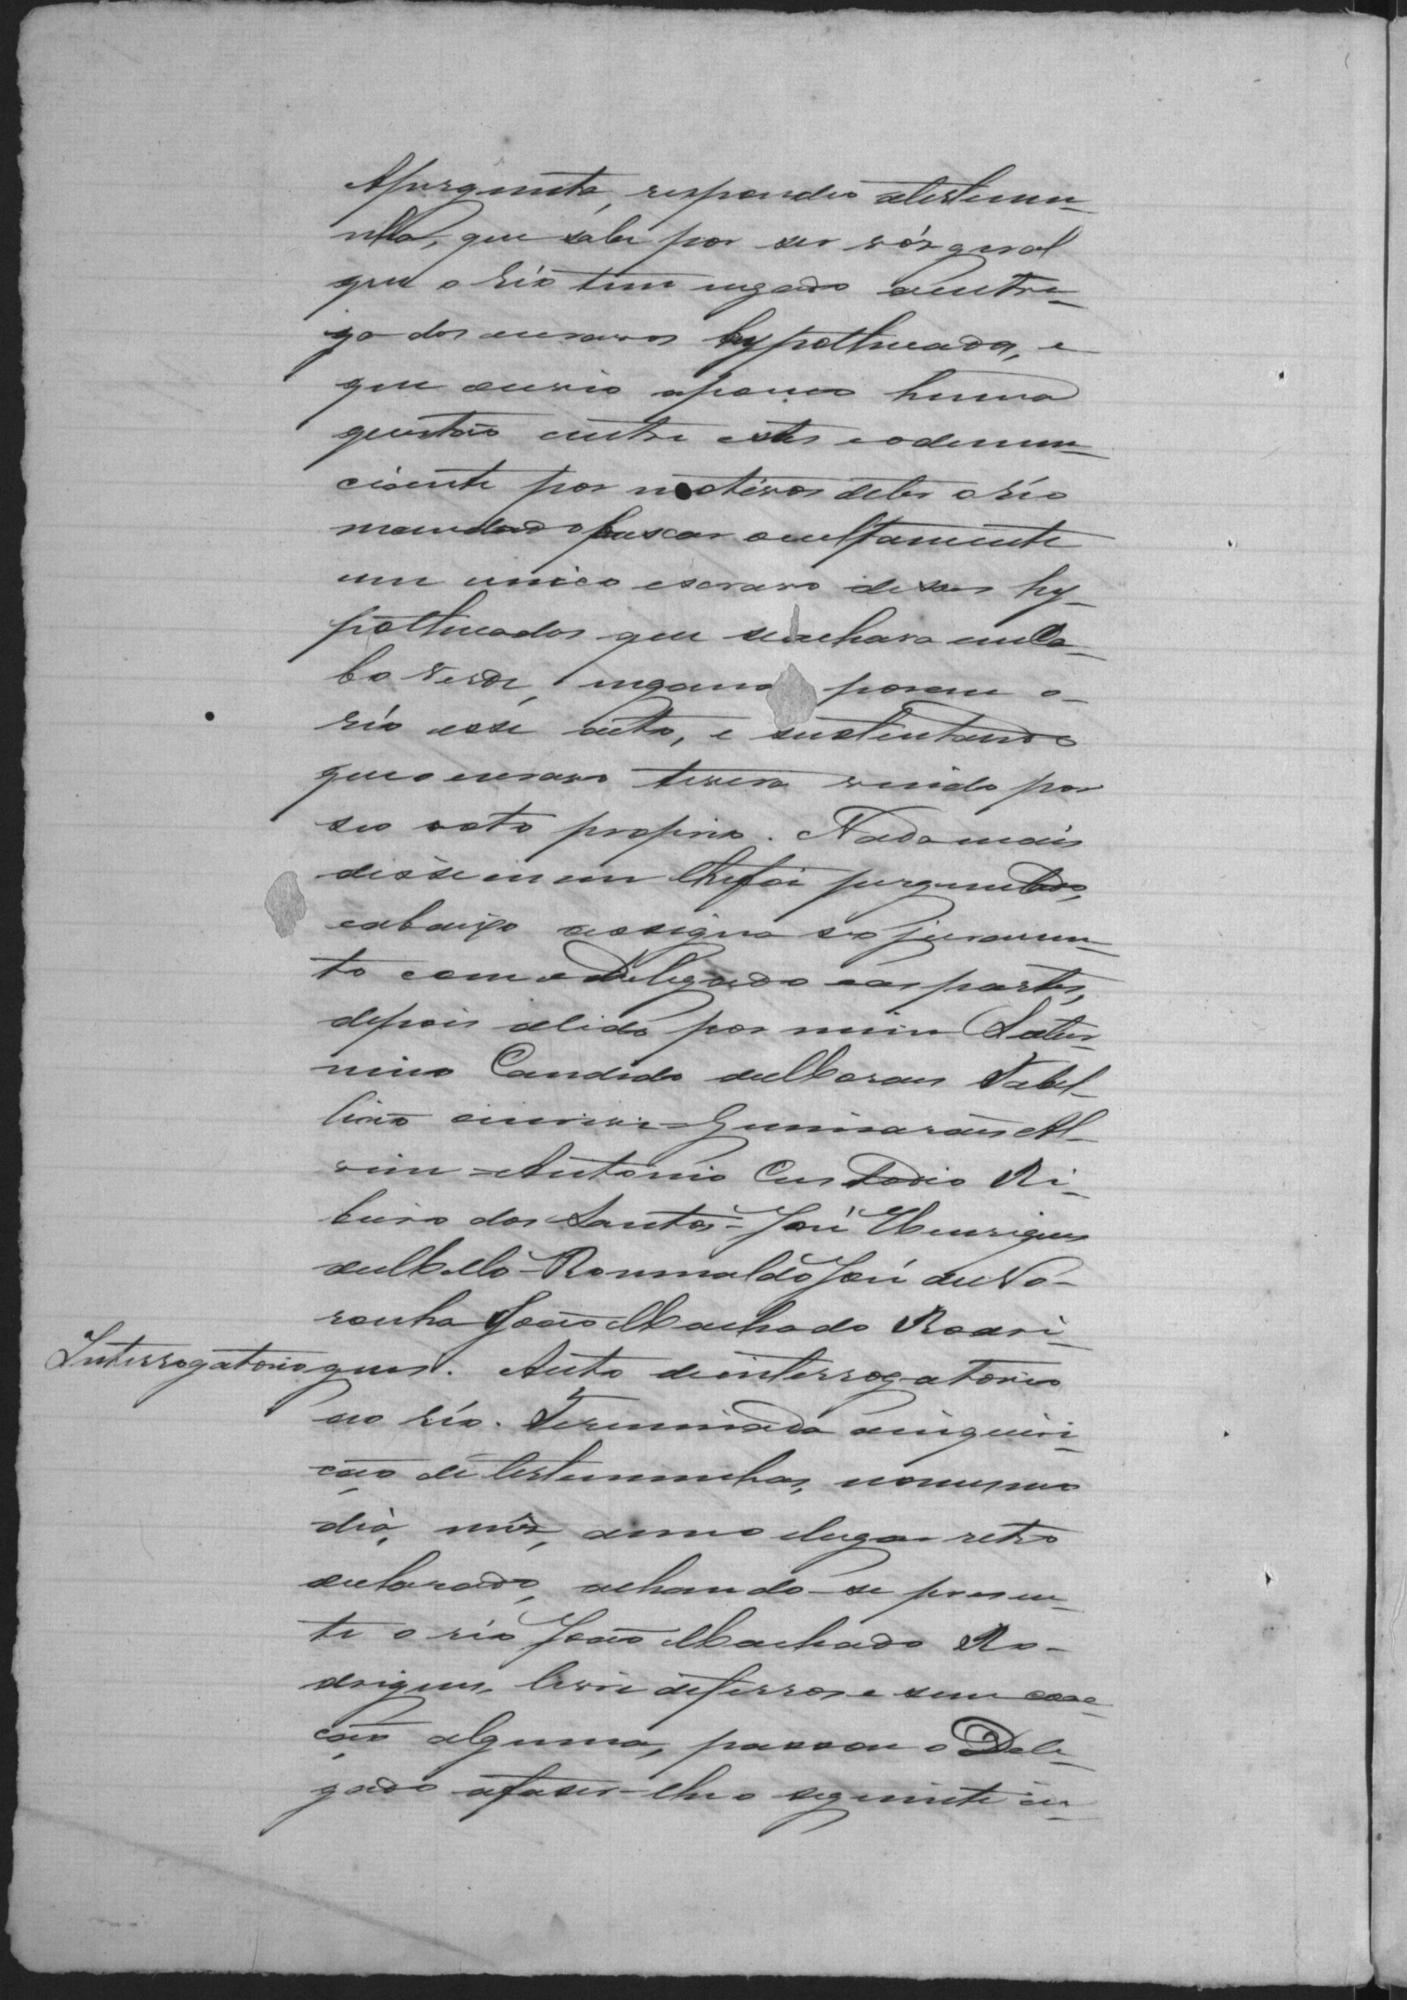 Apergunta, respondeo atestemu-
nha, que sabe por ser vóz geral
que o Réo tem negado aentre-
ga dos escravos hypothecados, e
que ouvio apenas huma
questão entre estes e odenun-
ciante por motivos deter o réo
mandado buscar ocultamente
um unico escravo desses hy-
pothecados que se achava em Ca-
bo Verde, negando porem o
réo esse acto, e sustentando
que o escravo tivera vindo por
seo voto proprio. Nada mais
disse nem lhe foi perguntado,
eabaixo assigna seo juramen-
to com o Delegado e as partes,
depois delido por mim Satur-
nino Candido de Moraes Tabel-
lião escrivi - Guimarães Al-
vim - Antonio Custodio Ri-
beiro dos Santos - José Henriques
de Mello - Romualdo José de No-
ronha João Machado Rodri-
Interrogatorio gues. Auto de interrogatorio
ao réo. Terminada ainquiri-
ção de testemunhas, nomesmo
dia, mêz, anno elugar retro
declarado, achando-se presen-
te o réo João Machado Ro-
drigues, livre deferros e sem coac-
ção alguma, passou o Dele-
gado afaser-lhe o seguinte in-